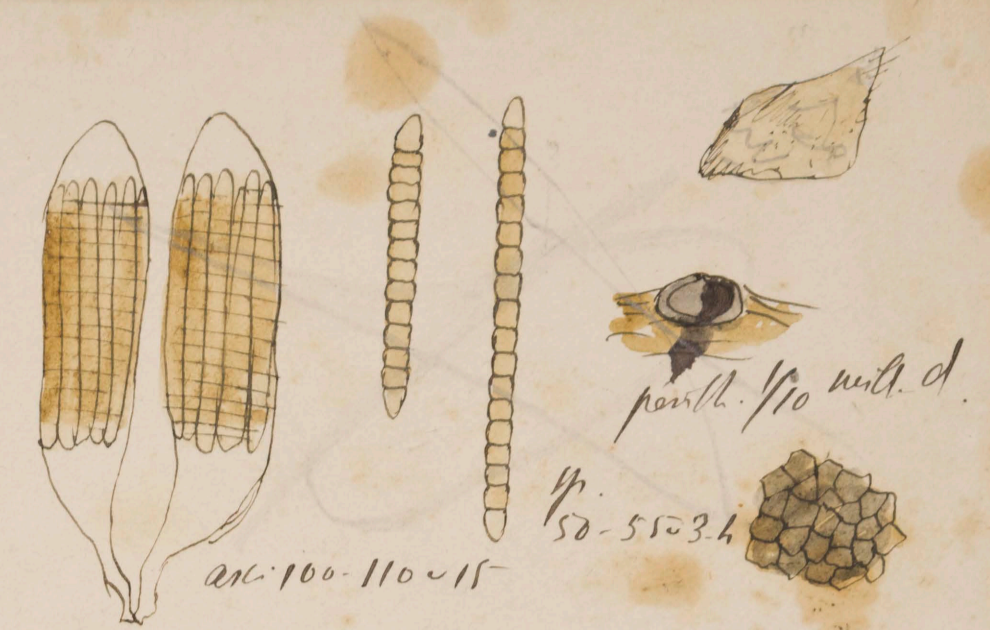 perith. 1/10 mill. d.
sp.
50-55 ⌣ 3-4
asci 100-110 ⌣ 15